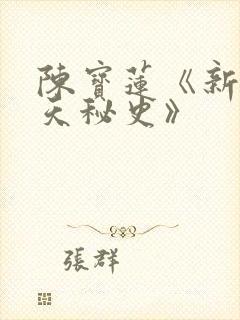 陳寶蓮《新
天秘史》
張群